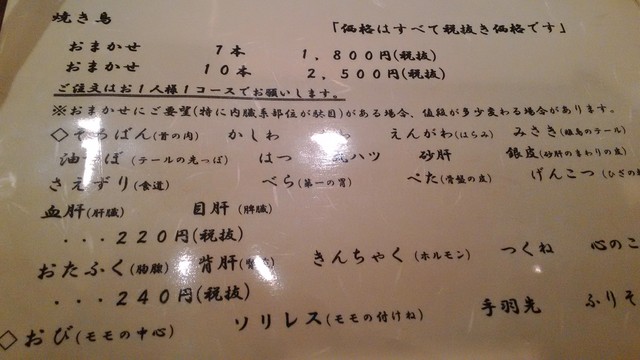 焼き鳥
「価格はすべて税抜き価格です」
おまかせ 7本 1,800円(税抜)
おまかせ 10本 2,500円(税抜)
ご注文はお1人様1コースでお願いします。
※おまかせにご要望(特に内臓系部位が駄目)がある場合、値段が多少変わる場合があります。
◇そろばん(首の肉) かしわ えんがわ(はらみ) みさき(雌鳥のテール)
油つぼ(テールの先っぽ) はつ ハツ 砂肝 銀皮(砂肝のまわりの皮)
さえずり(食道) べら(第一の胃) ぺた(骨盤の皮) げんこつ(ひざの
血肝(肝臓) 目肝(脾臓)
...220円(税抜)
おたふく(胸腺) 背肝 きんちゃく(ホルモン) つくね 心のこ
...240円(税抜)
◇おび(モモの中心) ソリレス(モモの付けね) 手羽先 ふりそ